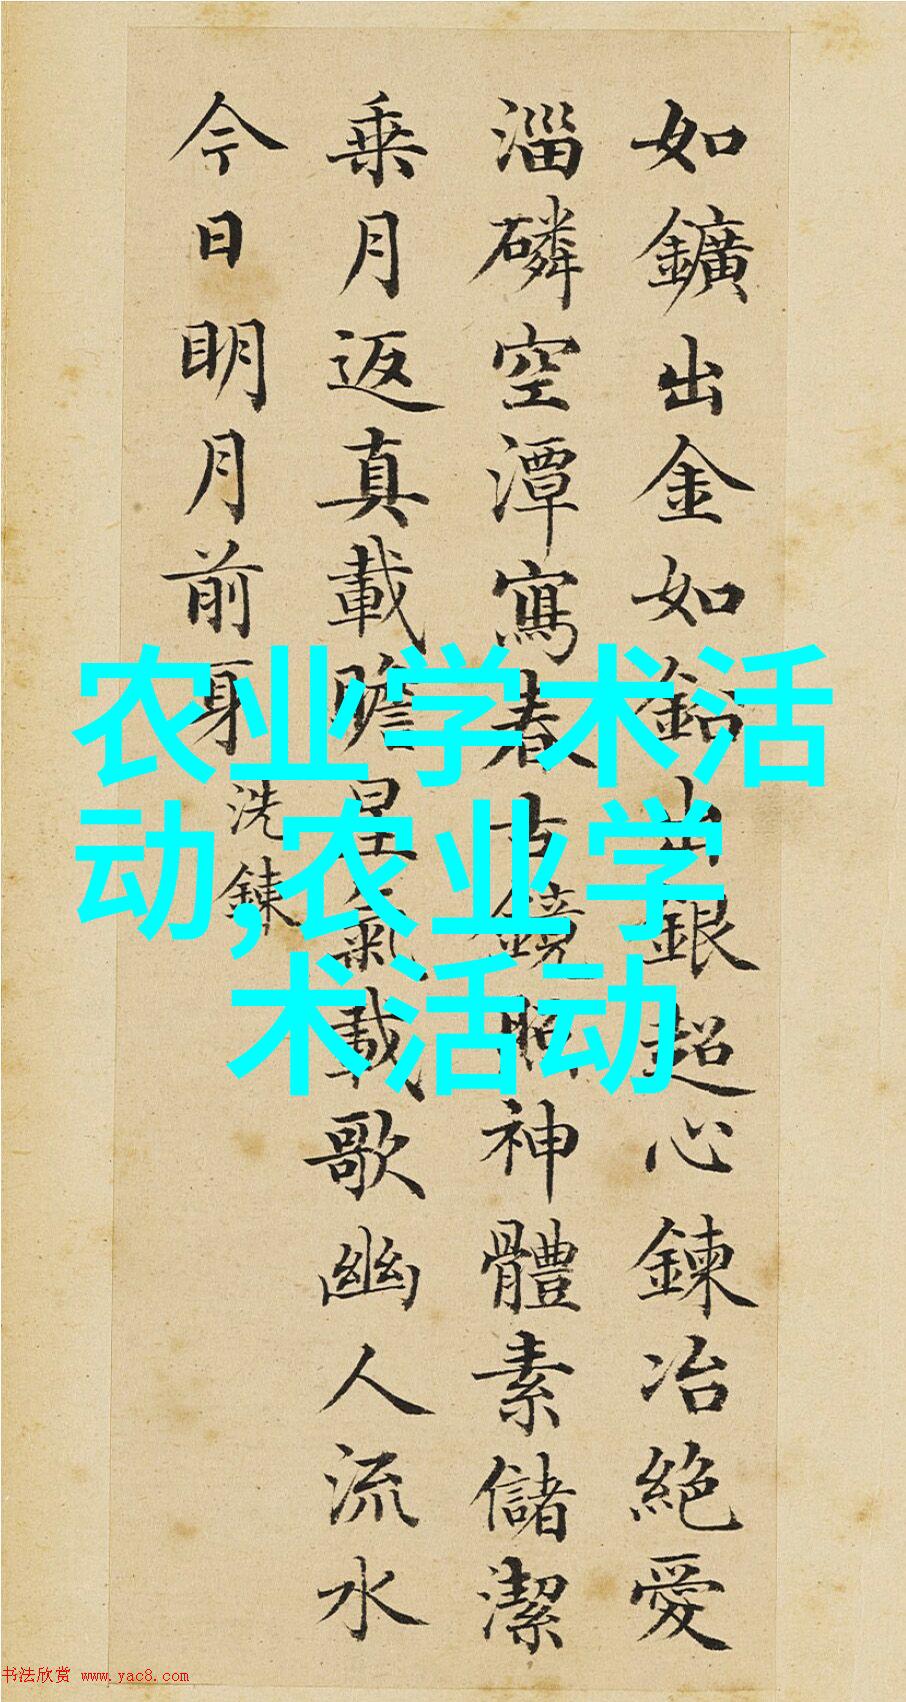 如鑛出金如鉛出銀超心鍊冶絕愛
淄磷空潭寫春古鏡照神體素儲潔
乘月返真載瞻星氣載歌幽人流水
今日明月前身
洗鍊
农业学术活
动,农业学
术活动
书法欣赏 www.yac8.com